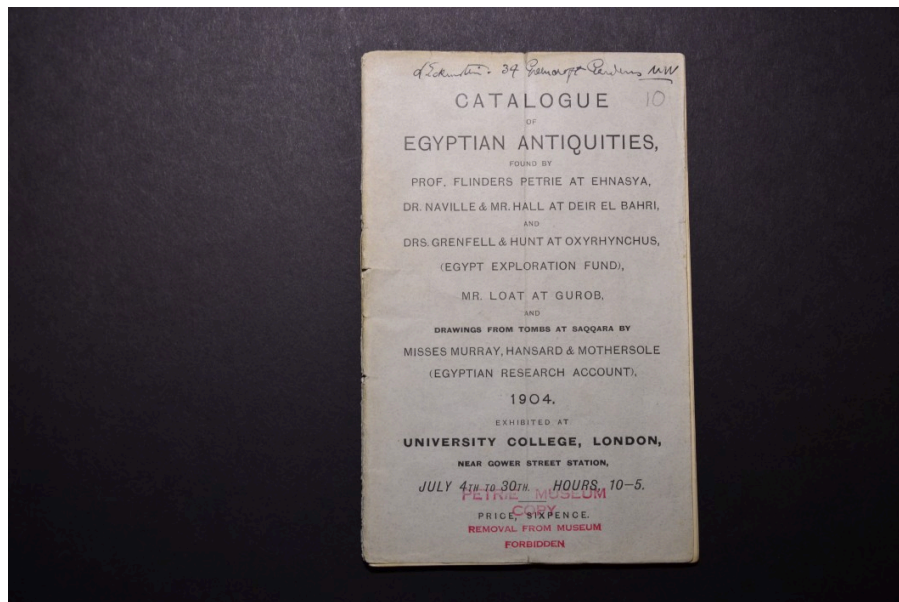 34 Greencroft Gardens NW
CATALOGUE 10
OF
EGYPTIAN ANTIQUITIES,
FOUND BY
PROF. FLINDERS PETRIE AT EHNASYA,
DR. NAVILLE & MR. HALL AT DEIR EL BAHRI,
AND
DRS. GRENFELL & HUNT AT OXYRHYNCHUS,
(EGYPT EXPLORATION FUND),
MR. LOAT AT GUROB,
AND
DRAWINGS FROM TOMBS AT SAQQARA BY
MISSES MURRAY, HANSARD & MOTHERSOLE
(EGYPTIAN RESEARCH ACCOUNT),
1904.
EXHIBITED AT
UNIVERSITY COLLEGE, LONDON,
NEAR GOWER STREET STATION,
JULY 4TH TO 30TH. HOURS, 10–5.
PETRIE MUSEUM
COPY
PRICE, SIXPENCE.
REMOVAL FROM MUSEUM
FORBIDDEN